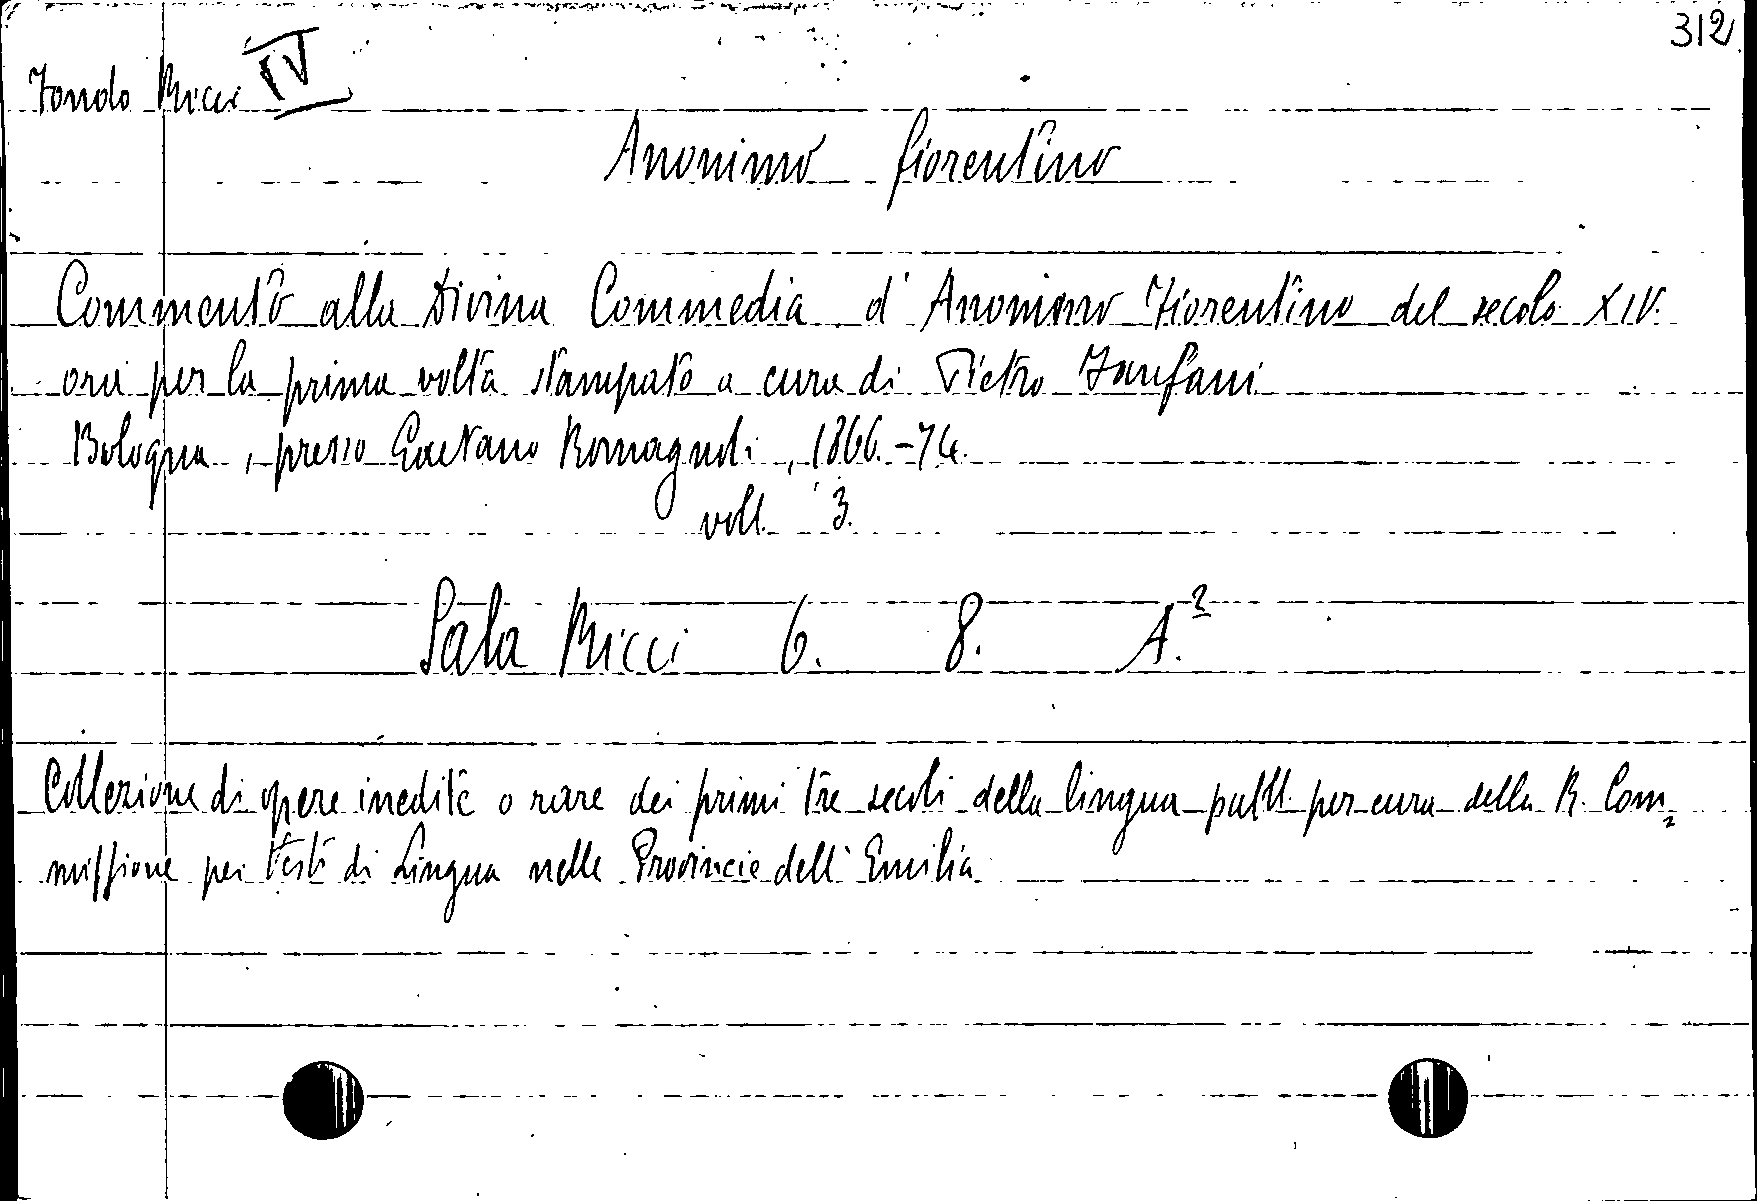 312
Fondo Ricci IV
Anonimo fiorentino
Commento alla Divina Commedia d'Anonimo Fiorentino del secolo XIV.
ora per la prima volta stampato a cura di Pietro Fanfani
Bologna, presso Gaetano Romagnoli, 1866.-74.
voll. 3.
Sala Ricci 6. 8. A.²
Collezione di opere inedite o rare dei primi tre secoli della lingua pubbl. per cura della R. Com=
missione pei testi di Lingua nelle Provincie dell'Emilia